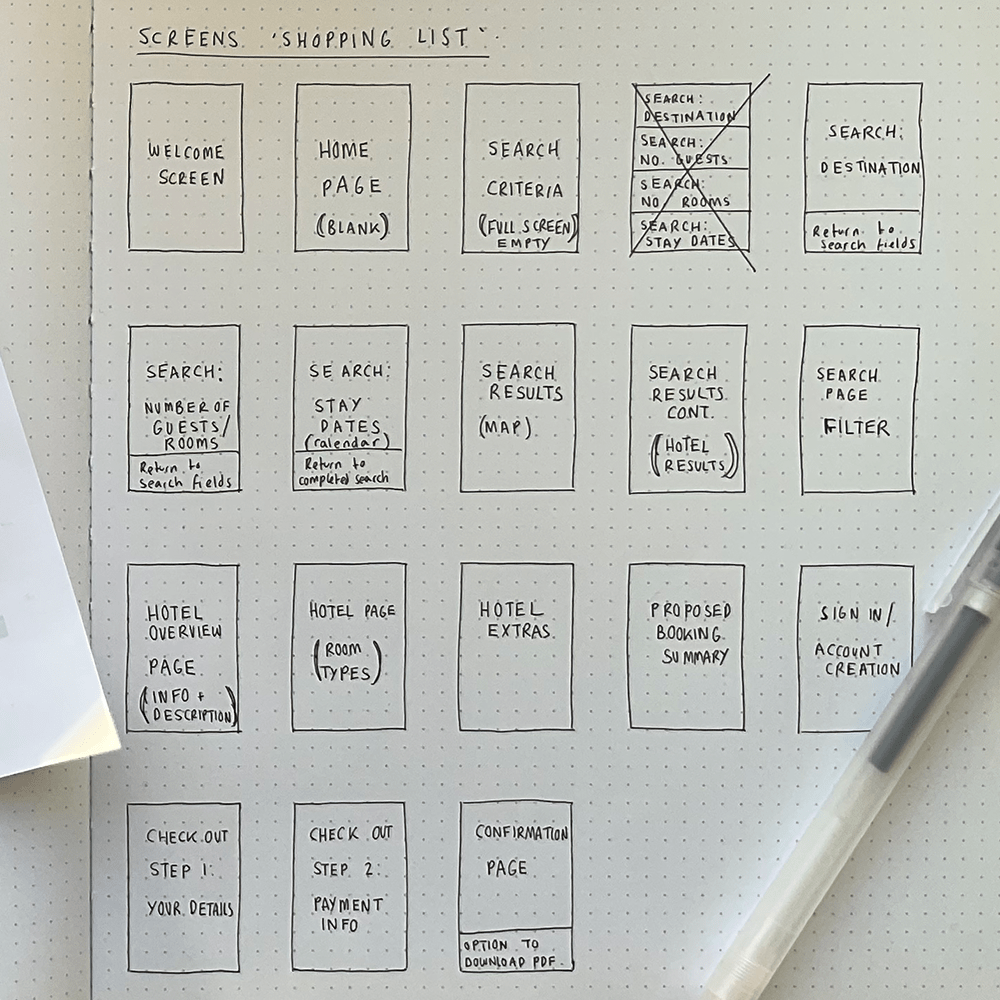 SCREENS 'SHOPPING LIST'
WELCOME
SCREEN
HOME
PAGE
(BLANK)
SEARCH
CRITERIA
(FULL SCREEN)
EMPTY
SEARCH:
DESTINATION
SEARCH:
NO. GUESTS
SEARCH:
NO ROOMS
SEARCH:
STAY DATES
SEARCH:
DESTINATION
Return to
search fields
SEARCH:
NUMBER OF
GUESTS/
ROOMS
Return to
search fields
SEARCH:
STAY
DATES
(calendar)
Return to
completed search
SEARCH
RESULTS
(MAP)
SEARCH
RESULTS
CONT.
(HOTEL
RESULTS)
SEARCH
PAGE
FILTER
HOTEL
OVERVIEW
PAGE
(INFO +
DESCRIPTION)
HOTEL PAGE
(ROOM
TYPES)
HOTEL
EXTRAS
PROPOSED
BOOKING
SUMMARY
SIGN IN/
ACCOUNT
CREATION
CHECK OUT
STEP 1:
YOUR DETAILS
CHECK OUT
STEP 2:
PAYMENT
INFO
CONFIRMATION
PAGE
OPTION TO
DOWNLOAD PDF.